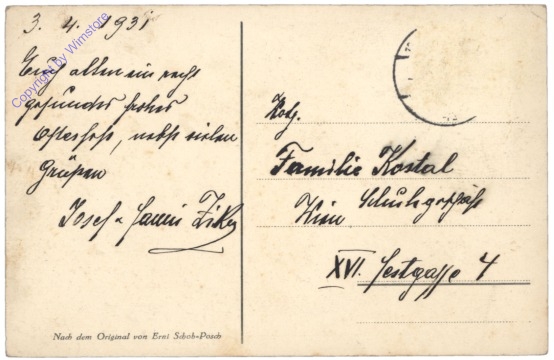 3. 4. 1931
Euch allen ein recht
gesundes frohes
Osterfest, nebst vielen
Grüßen
Josef u.
Copyright by Wimstore
Nach dem Original von Erni Schob-Posch
Familie Kostal
Wien Schuhgeschäft
XVI. 4